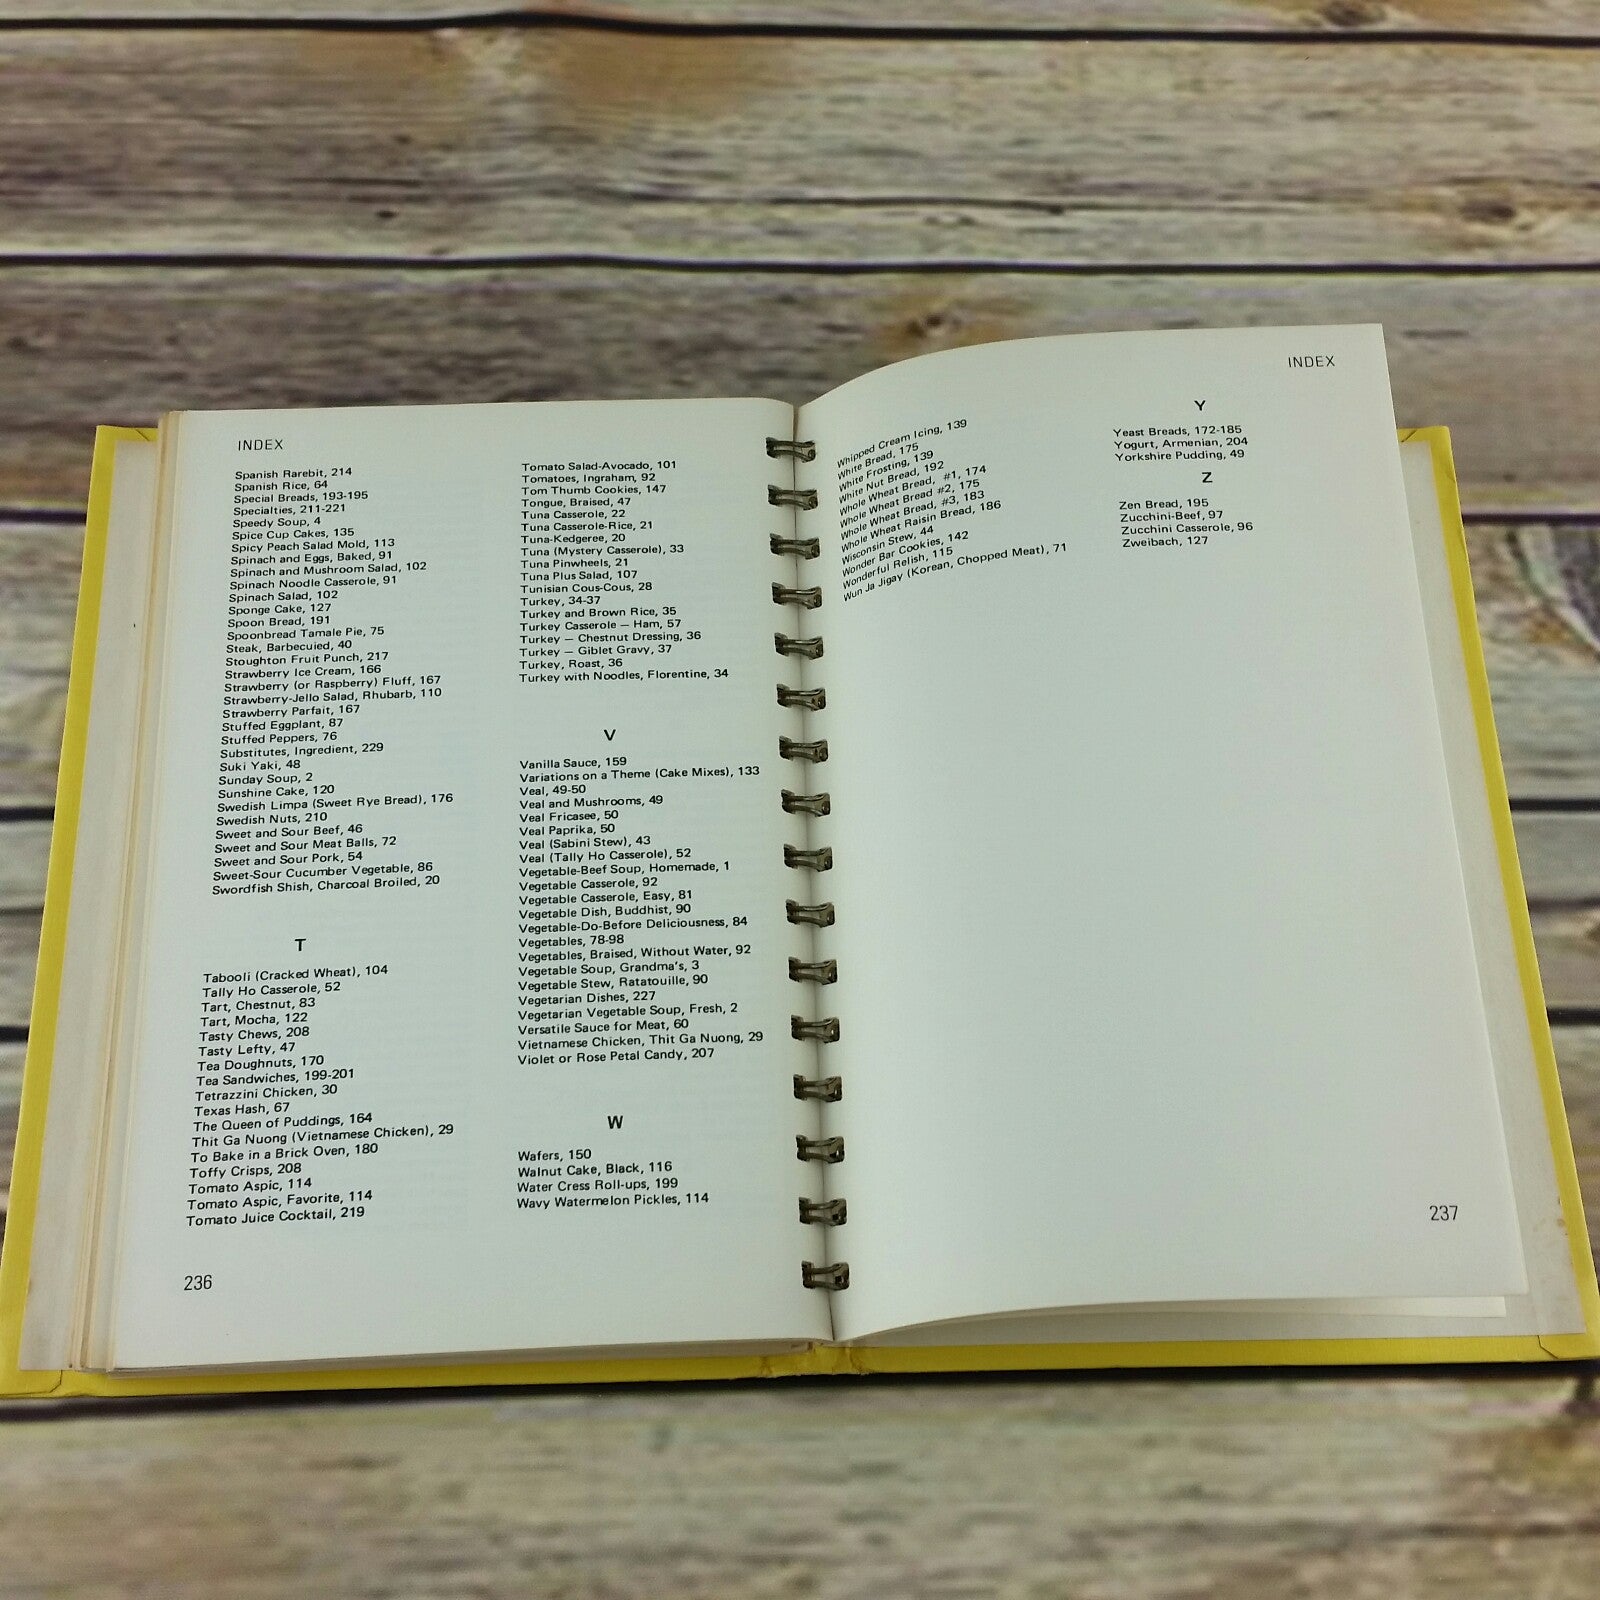 INDEX
Spanish Rarebit, 214
Spanish Rice, 64
Special Breads, 193-195
Specialties, 211-221
Speedy Soup, 4
Spice Cup Cakes, 135
Spicy Peach Salad Mold, 113
Spinach and Eggs, Baked, 91
Spinach and Mushroom Salad, 102
Spinach Noodle Casserole, 91
Spinach Salad, 102
Sponge Cake, 127
Spoon Bread, 191
Spoonbread Tamale Pie, 75
Steak, Barbecuied, 40
Stoughton Fruit Punch, 217
Strawberry Ice Cream, 166
Strawberry (or Raspberry) Fluff, 167
Strawberry-Jello Salad, Rhubarb, 110
Strawberry Parfait, 167
Stuffed Eggplant, 87
Stuffed Peppers, 76
Substitutes, Ingredient, 229
Suki Yaki, 48
Sunday Soup, 2
Sunshine Cake, 120
Swedish Limpa (Sweet Rye Bread), 176
Swedish Nuts, 210
Sweet and Sour Beef, 46
Sweet and Sour Meat Balls, 72
Sweet and Sour Pork, 54
Sweet-Sour Cucumber Vegetable, 86
Swordfish Shish, Charcoal Broiled, 20
T
Tabooli (Cracked Wheat), 104
Tally Ho Casserole, 52
Tart, Chestnut, 83
Tart, Mocha, 122
Tasty Chews, 208
Tasty Lefty, 47
Tea Doughnuts, 170
Tea Sandwiches, 199-201
Tetrazzini Chicken, 30
Texas Hash, 67
The Queen of Puddings, 164
Thit Ga Nuong (Vietnamese Chicken), 29
To Bake in a Brick Oven, 180
Toffy Crisps, 208
Tomato Aspic, 114
Tomato Aspic, Favorite, 114
Tomato Juice Cocktail, 219
236
Tomato Salad-Avocado, 101
Tomatoes, Ingraham, 92
Tom Thumb Cookies, 147
Tongue, Braised, 47
Tuna Casserole, 22
Tuna Casserole-Rice, 21
Tuna-Kedgeree, 20
Tuna (Mystery Casserole), 33
Tuna Pinwheels, 21
Tuna Plus Salad, 107
Tunisian Cous-Cous, 28
Turkey, 34-37
Turkey and Brown Rice, 35
Turkey Casserole – Ham, 57
Turkey – Chestnut Dressing, 36
Turkey – Giblet Gravy, 37
Turkey, Roast, 36
Turkey with Noodles, Florentine, 34
V
Vanilla Sauce, 159
Variations on a Theme (Cake Mixes), 133
Veal, 49-50
Veal and Mushrooms, 49
Veal Fricasee, 50
Veal Paprika, 50
Veal (Sabini Stew), 43
Veal (Tally Ho Casserole), 52
Vegetable-Beef Soup, Homemade, 1
Vegetable Casserole, 92
Vegetable Casserole, Easy, 81
Vegetable Dish, Buddhist, 90
Vegetable-Do-Before Deliciousness, 84
Vegetables, 78-98
Vegetables, Braised, Without Water, 92
Vegetable Soup, Grandma's, 3
Vegetable Stew, Ratatouille, 90
Vegetarian Dishes, 227
Vegetarian Vegetable Soup, Fresh, 2
Versatile Sauce for Meat, 60
Vietnamese Chicken, Thit Ga Nuong, 29
Violet or Rose Petal Candy, 207
W
Wafers, 150
Walnut Cake, Black, 116
Water Cress Roll-ups, 199
Wavy Watermelon Pickles, 114
INDEX
Whipped Cream Icing, 139
White Bread, 175
White Frosting, 139
White Nut Bread, 192
Whole Wheat Bread, #1, 174
Whole Wheat Bread #2, 175
Whole Wheat Bread, #3, 183
Whole Wheat Raisin Bread, 186
Wisconsin Stew, 44
Wonder Bar Cookies, 142
Wonderful Relish, 115
Wun Ja Jigay (Korean, Chopped Meat), 71
Y
Yeast Breads, 172-185
Yogurt, Armenian, 204
Yorkshire Pudding, 49
Z
Zen Bread, 195
Zucchini-Beef, 97
Zucchini Casserole, 96
Zweibach, 127
237